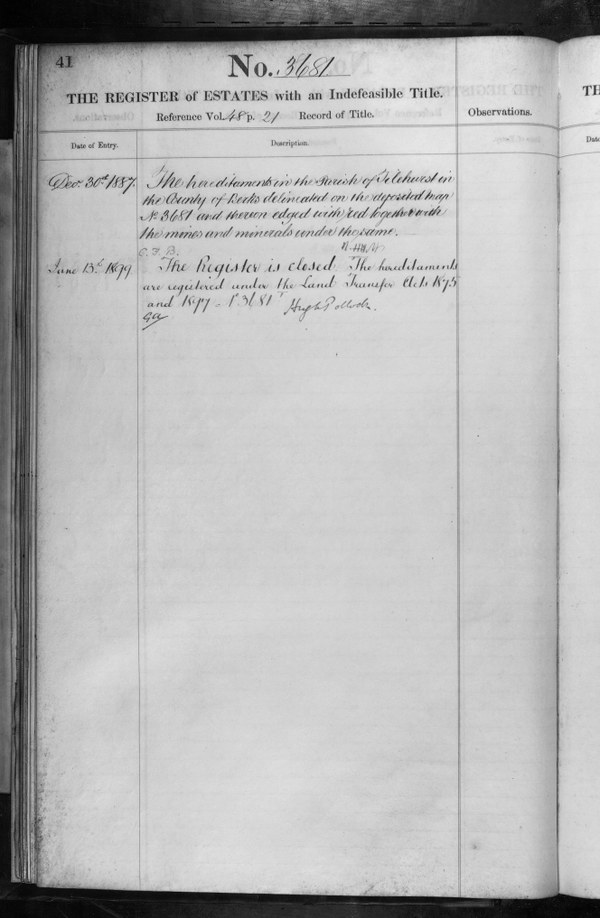 41
No. 3681
THE REGISTER of ESTATES with an Indefeasible Title.
Reference Vol. 48 p. 21 Record of Title.
Observations.
Date of Entry.
Description.
Decr. 30th 1887.
The hereditaments in the Parish of Tilehurst in
the County of Berks delineated on the deposited map
No 3681 and thereon edged with red together with
the mines and minerals under the same.
C. F. B.
June 13th 1899
The Register is closed The hereditaments
are registered under the Land Transfer Acts 1875
and 1897 - No 3681
Hugh Pollock.
TH
Date